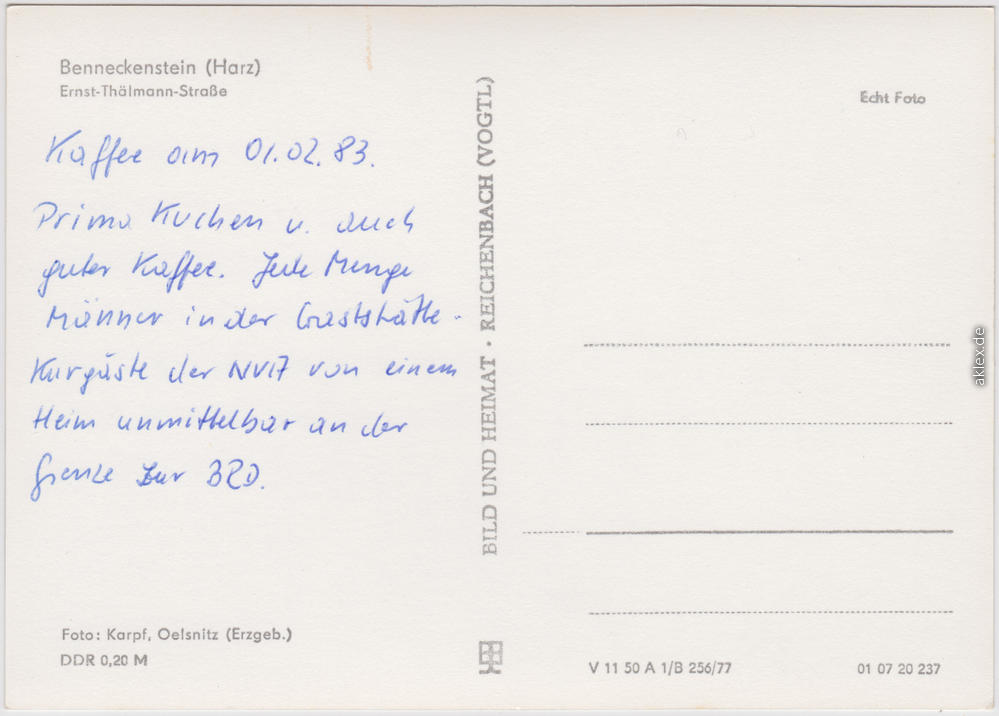 Benneckenstein (Harz)
Ernst-Thälmann-Straße
Kaffee am 01.02.83.
Prima Kuchen u. auch
guter Kaffee. Jede Menge
Männer in der Gaststätte.
Kurgäste der NVA von einem
Heim unmittelbar an der
Grenze zur BRD.
Foto: Karpf, Oelsnitz (Erzgeb.)
DDR 0,20 M
BILD UND HEIMAT · REICHENBACH (VOGTL)
Echt Foto
V 11 50 A 1/B 256/77
01 07 20 237
aklex.de